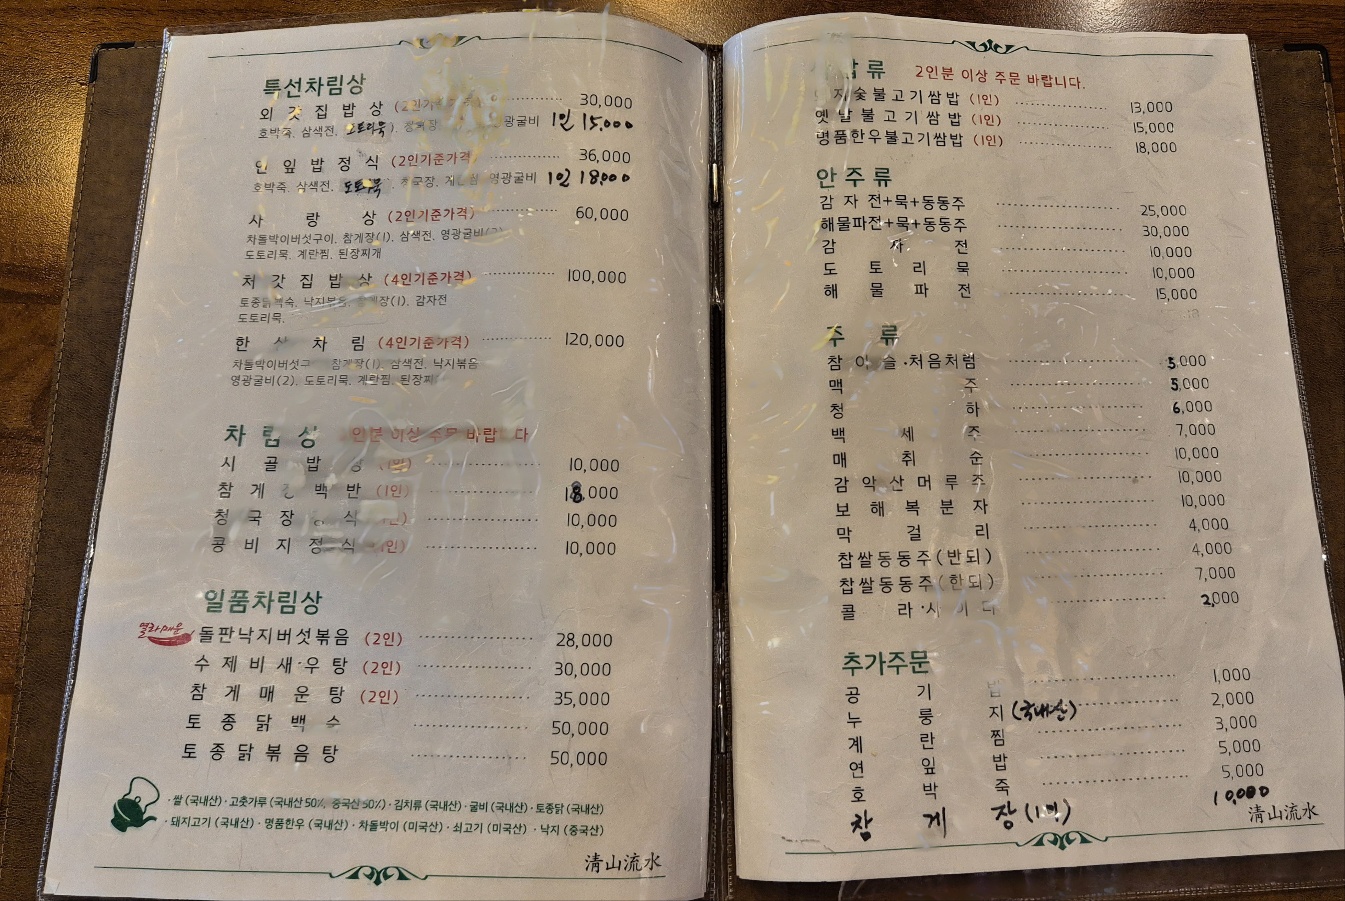 특선차림상
외 갓 집 밥 상 30,000
호박죽, 삼색전, 도토리묵 광굴비 1인 15,000
연 잎 밥 정 식 (2인기준가격) 36,000
호박죽, 삼색전, 도토리묵 영광굴비 1인 18,000
사 랑 상 (2인기준가격) 60,000
차돌박이버섯구이, 참게장(1), 삼색전, 영광굴비(2)
도토리묵, 계란찜, 된장찌개
처 갓 집 밥 상 (4인기준가격) 100,000
토종닭백숙, 낙지볶음, 장(1), 감자전
도토리묵,
한 상 차 림 (4인기준가격) 120,000
차돌박이버섯구 참게장(1), 삼색전, 낙지볶음
영광굴비(2), 도토리묵, 계란찜, 된장찌
차 림 상 인분 이상 주문 바랍 다
시 골 밥 상 (1인) 10,000
참 게 백 반 (1인) 18,000
청 국 장 식 (1인) 10,000
콩 비 지 정 식 (1인) 10,000
일품차림상
열라매운 돌판낙지버섯볶음 (2인) 28,000
수 제 비 새 우 탕 (2인) 30,000
참 게 매 운 탕 (2인) 35,000
토 종 닭 백 수 50,000
토 종 닭 볶 음 탕 50,000
· 쌀 (국내산) · 고춧가루 (국내산 50%, 중국산 50%) · 김치류 (국내산) · 굴비 (국내산) · 토종닭 (국내산)
· 돼지고기 (국내산) · 명품한우 (국내산) · 차돌박이 (미국산) · 쇠고기 (미국산) · 낙지 (중국산)
清山流水
류 2인분 이상 주문 바랍니다.
숯불고기쌈밥 (1인) 13,000
옛 날 불 고 기 쌈 밥 (1인) 15,000
명품한우불고기쌈밥 (1인) 18,000
안 주 류
감 자 전+묵+동동주 25,000
해물파전+묵+동동주 30,000
감 자 전 10,000
도 토 리 묵 10,000
해 물 파 전 15,000
주 류
참 이 슬 · 처음처럼 5,000
맥 주 5,000
청 하 6,000
백 세 주 7,000
매 취 순 10,000
감 악 산 머 루 주 10,000
보 해 복 분 자 10,000
막 걸 리 4,000
찹쌀동동주(반되) 4,000
찹쌀동동주(한되) 7,000
콜 라 · 사 이 다 2,000
추가주문
공 기 밥 1,000
누 룽 지 (국내산) 2,000
계 란 찜 3,000
연 잎 밥 5,000
호 박 죽 5,000
참 게 장 (1인) 10,000
清山流水